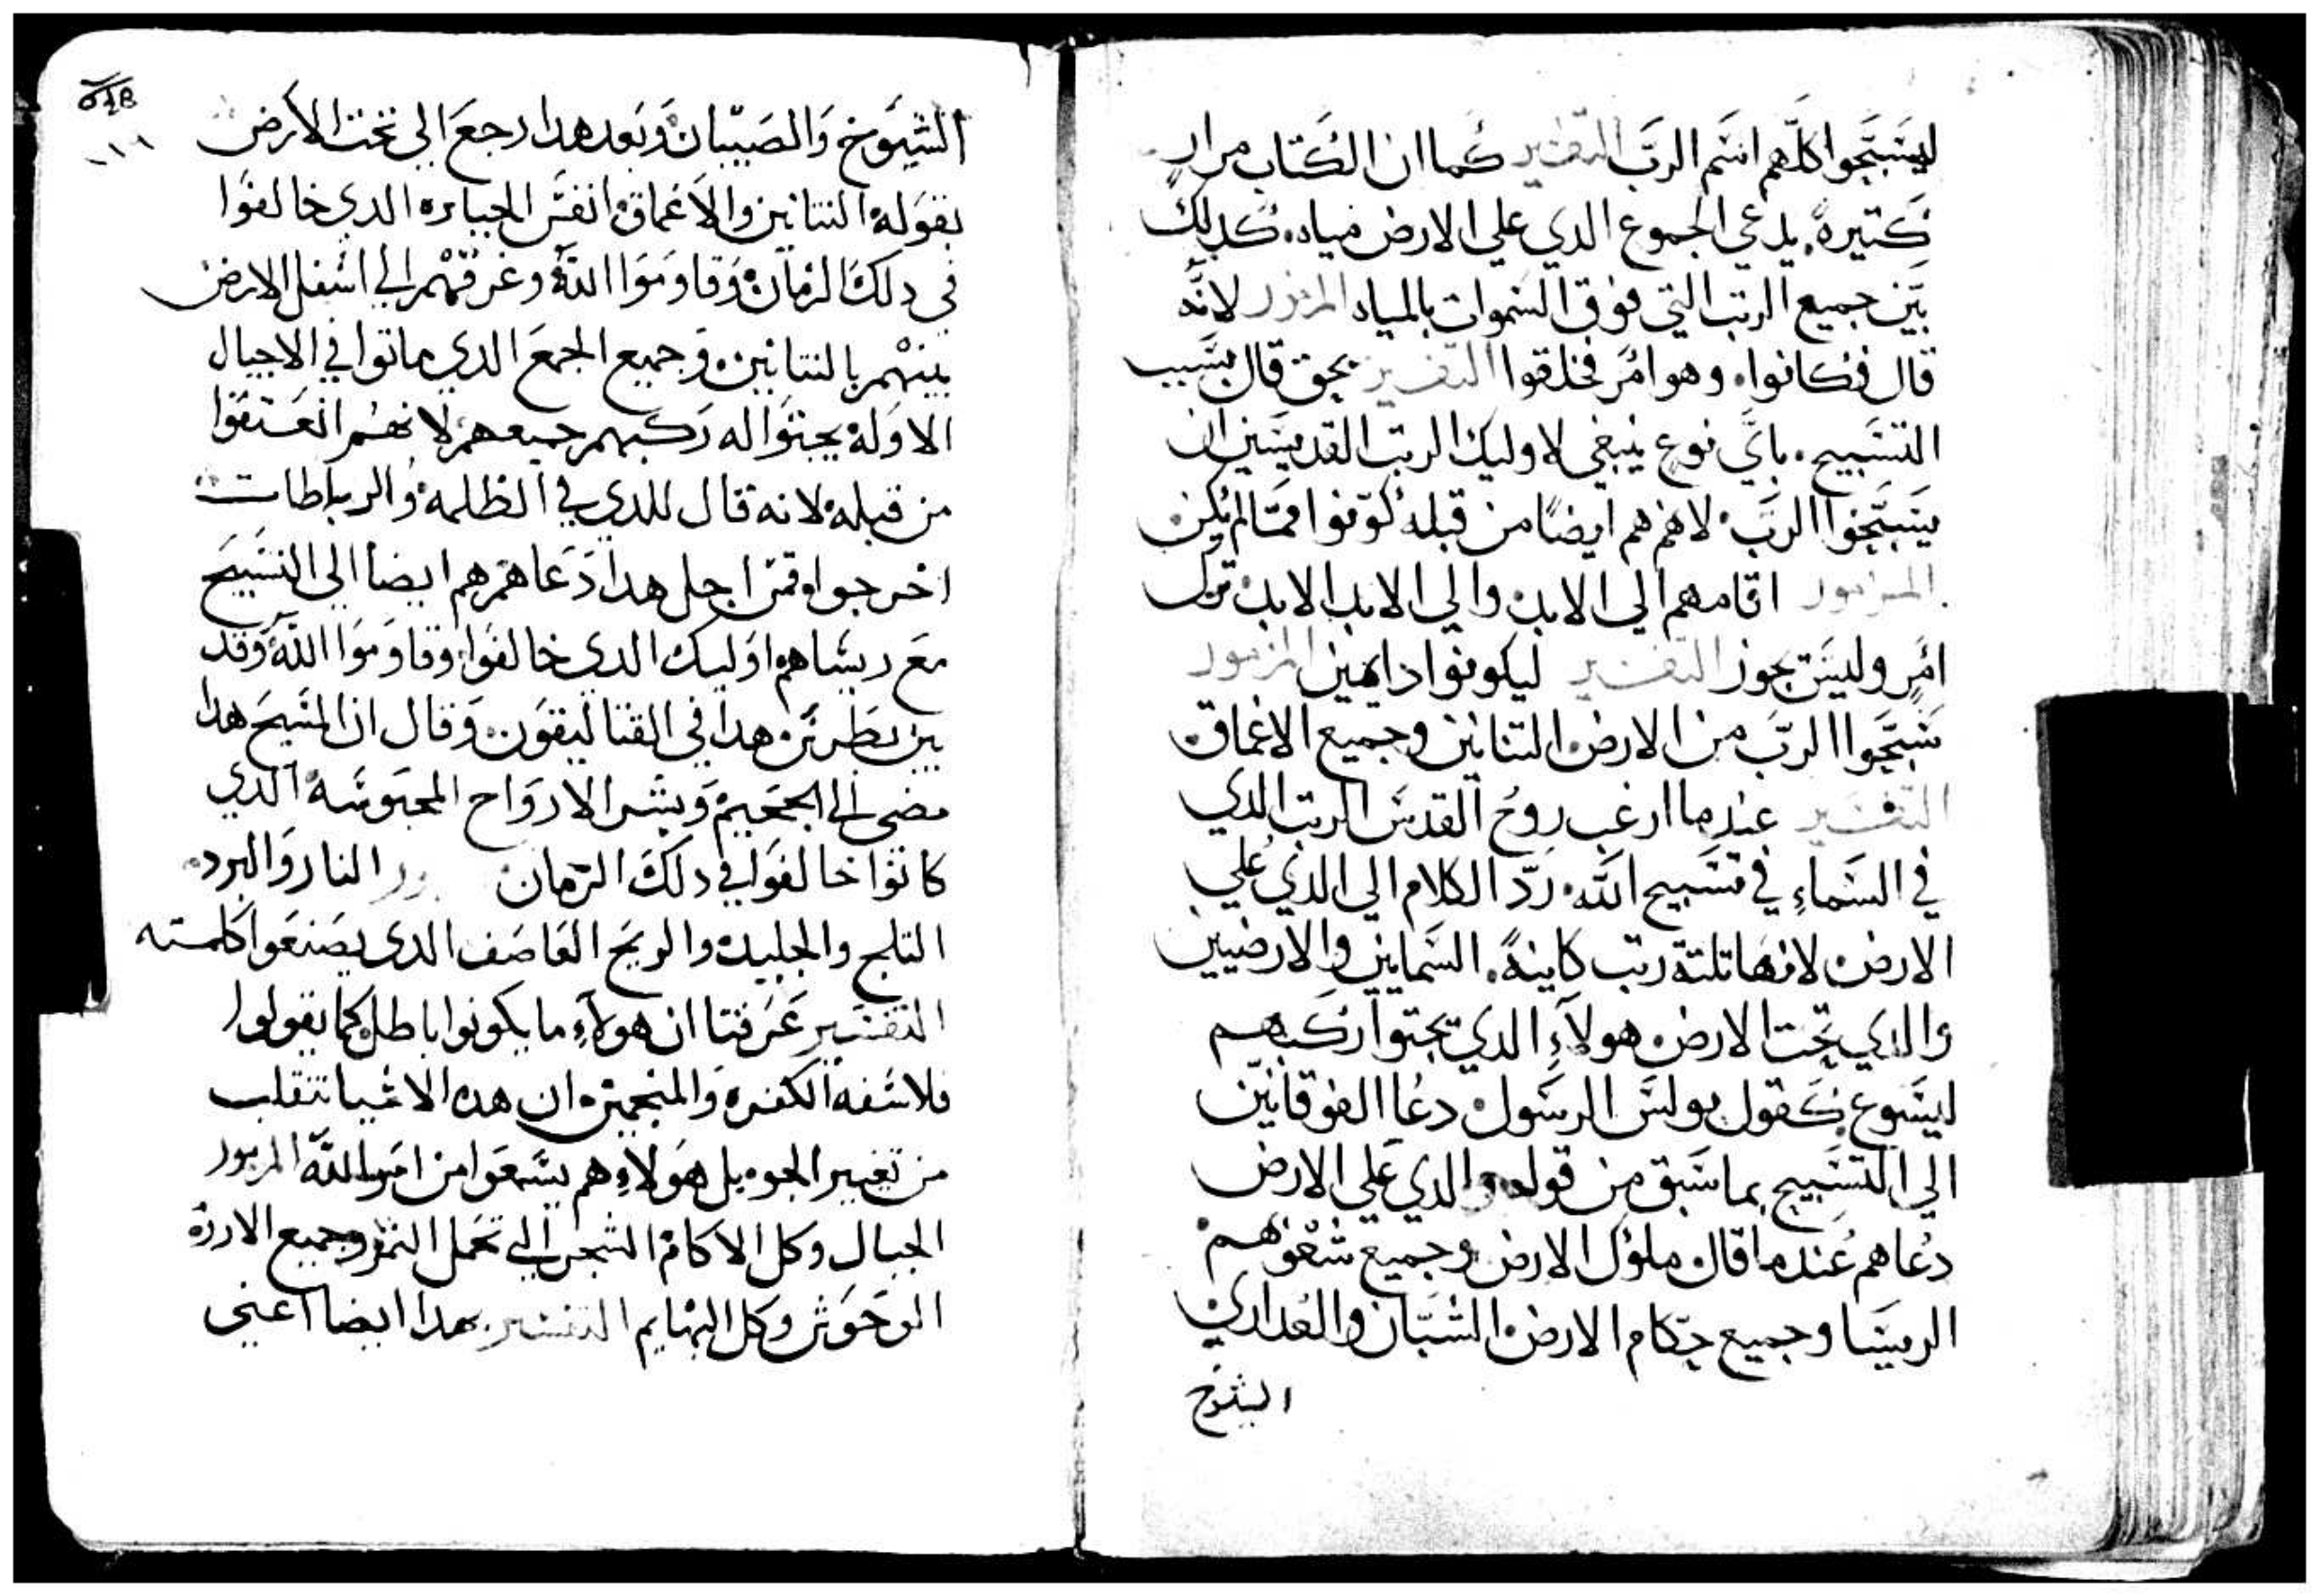 ليسَبّحوا كلّهم اسَم الربّ التفسير كما ان الكتاب مرار
كتيرة. يدعي الجموع الدي علي الارض مياه. كدلك
بيّن جميع الرتب التي فوق السَموات بالمياه المزمور لانّه
قال فكانوا. وهو امرَ فخلقوا التفسير بحق قال بسَبب
التسَبيح. بايّ نوع ينبغي لاوليك الرتب القديسَين ان
يسَبّحوا الربّ. لانهم هم ايضًا من قبله كوّنوا ممّا لم يكن
المزمور اقامهم الي الابد. والي الابد الابد. ترك
امرٍ وليسَ يجوز التفسير ليكونوا دايمين المزمور
سَبّحوا الربّ من الارض. التنانين وجميع الاغماق.
التفسير عندما ارغب روحُ القدسَ الرتب الدي
في السَماءِ في تسَبيح الله. ردّ الكلام الي الدي علي
الارض. لانها تلتة رتب كاينةً. السَمايين والارضيين
والدي تحت الارض. هولآءِ الدي تجتوا ركبهم
ليسَوع. كقول بولسَ الرسَول. دعا الفوقانيّن
الي التسَبيح بما سَبق من قوله. والدي علي الارض
دعاهم عندما قال. ملوك الارض وجميع شعوبهم
الريسَا وجميع حكّام الارض. الشبّان والعداري
الشيوخ
الشيَوخ وَالصَبيّبان وَبَعد هدا رجعَ الي تحت الارض
بقوَله. التنانين والاغماق. انفسَ الجبابره الدي خالفوَا
في دلكَ الزمان. وَقاومَوَا اللهَ وغرقهْم الي اسَفل الارض
بينهْم بالتنانين. وَجميع الجمعَ الدي ماتوا في الاجيال
الاوَله. يجتوَا له ركبهم جميعهم. لانهُم انعَتقوَا
من قبله. لانه قال للدي في الظلمه. وَالرباطات
اخرجوا. فمن اجل هدا دَعَاهمَ هم ايضا الي التسَبيحَ
معَ ريسَاهم اوَليك الدي خالفوَا. وقاومَوَا اللهَ وَقد
بين بطرسَ. هدا في القتاليقوَن. وَقال ان المسَيحَ هدا
مضي الي الجحَيم وَبشر الاروَاح المحبَوسَه الدي
كانوَا خالفوَا في دلكَ الزمان النار وَالبرد.
التلج والجليد. والريحَ العَاصَف الدي يصَنعَوا كلمته
التفسَير عَرفتا ان هولآءِ ما يكونوا باطل. كما يقولوا
فلاسَفه الكفره وَالمنجمين. ان هده الاشيا تنقلب
من تغيير الجو. بل هَولاءِ هم يسَمعَوا من امرَ اللهَ المزمور
الجبال وكل الاكام. الشجر التي تحَمل التمَر وجميع الارزة
الوَحَوَش وَكل البهَايم التفسَير. هدا ايضا اعني